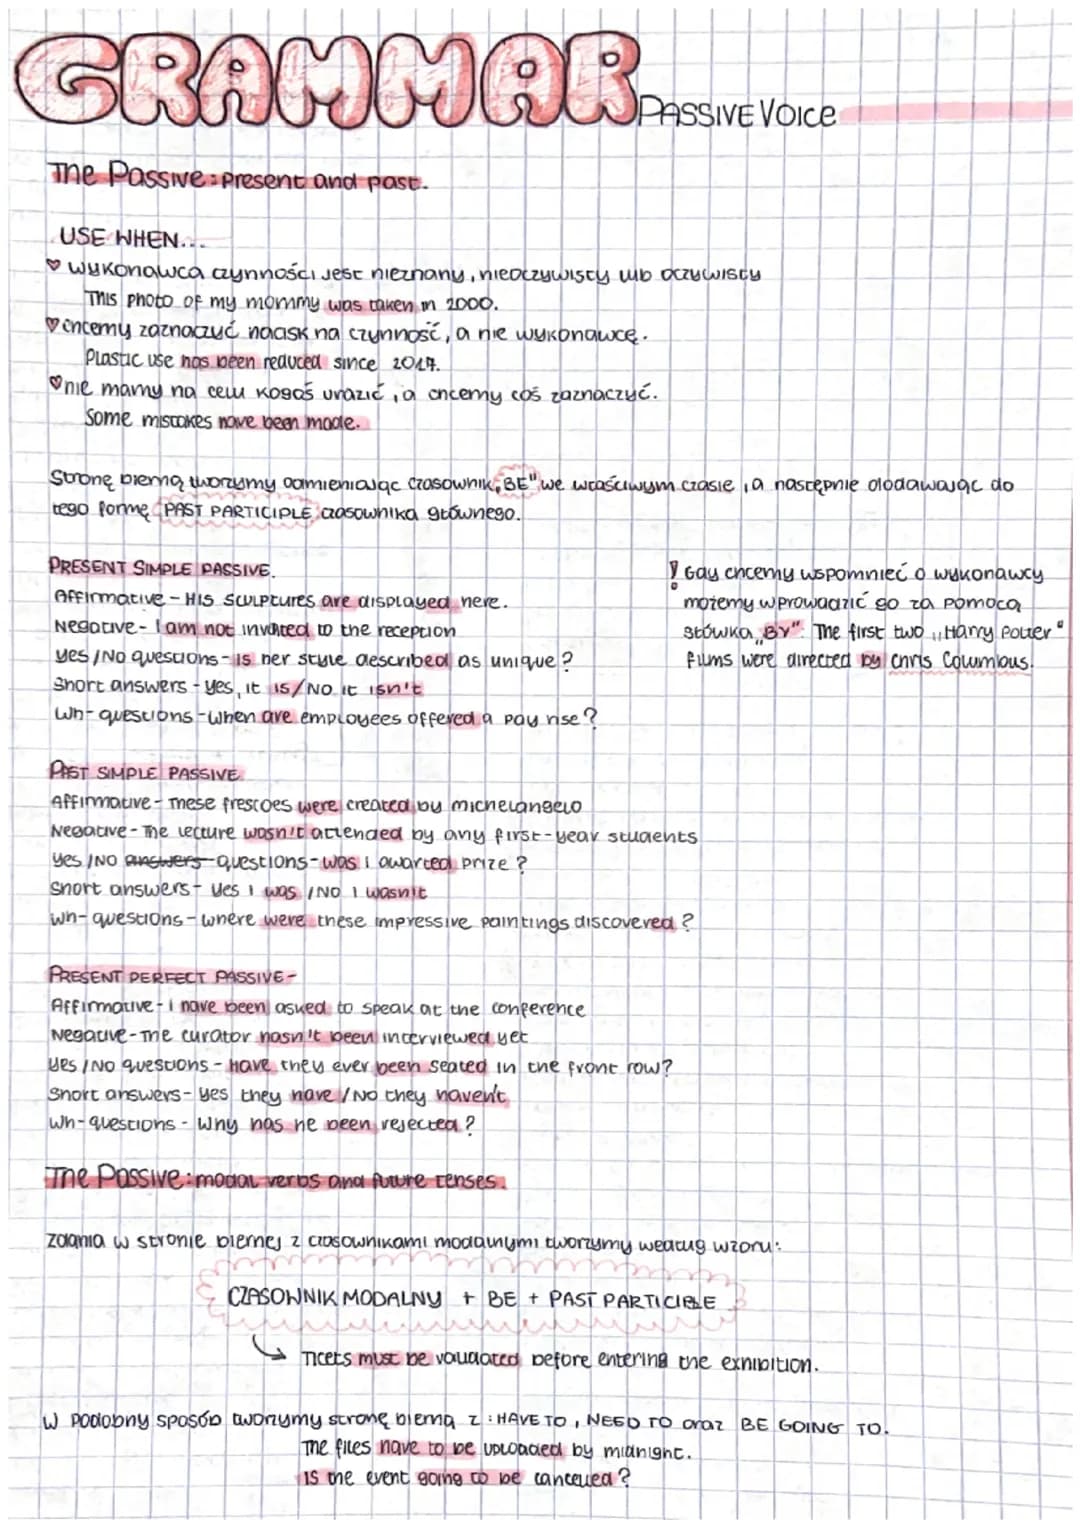 GRAMMAR PASSIVE VOICE
The Passive: present and past.
USE WHEN...
♡ wykonawca czynności jest nieznany, nieoczywisty lub oczywisty
This photo of my mommy was taken in 2000.
♡ chcemy zaznaczyć nacisk na czynność, a nie wykonawcę.
Plastic use has been reduced since 2017.
♡ nie mamy na celu kogoś urazić, a chcemy coś zaznaczyć.
Some mistakes have been made.
Stronę bierną tworzymy odmieniając czasownik „BE" we właściwym czasie, a następnie dodawając do
tego formę PAST PARTICIPLE czasownika głównego.
PRESENT SIMPLE PASSIVE.
Affirmative - His sculptures are displayed here.
Negative - I am not invited to the reception
Yes/No questions - is her style described as unique?
Short answers - yes, it is/No it isn't
Wh- questions - when are employees offered a pay rise?
! Gdy chcemy wspomnieć o wykonawcy
możemy wprowadzić go za pomocą
słówka „BY". The first two „Harry Potter"
films were directed by Chris Columbous.
PAST SIMPLE PASSIVE
Affirmative - These frescoes were created by michelangelo
Negative - The lecture wasn't attended by any first-year students
Yes/No answers questions - was I awarted prize?
Short answers - Yes I was / No I wasn't
Wh- questions - where were these impressive paintings discovered?
PRESENT PERFECT PASSIVE -
Affirmative - I have been asked to speak at the conference
Negative - The curator hasn't been interviewed yet
Yes/No questions - Have they ever been seated in the front row?
Short answers - yes they have / No they haven't
Wh- questions - Why has he been rejected?
The Passive: modal verbs and future tenses.
Zdania w stronie biernej z czasownikami modalnymi tworzymy według wzoru:
CZASOWNIK MODALNY + BE + PAST PARTICIPLE
Ticets must be validated before entering the exhibition.
W podobny sposób tworzymy stronę bierną z: HAVE TO, NEED TO oraz BE GOING TO.
The files have to be uploaded by midnight.
Is the event going to be cancelled?